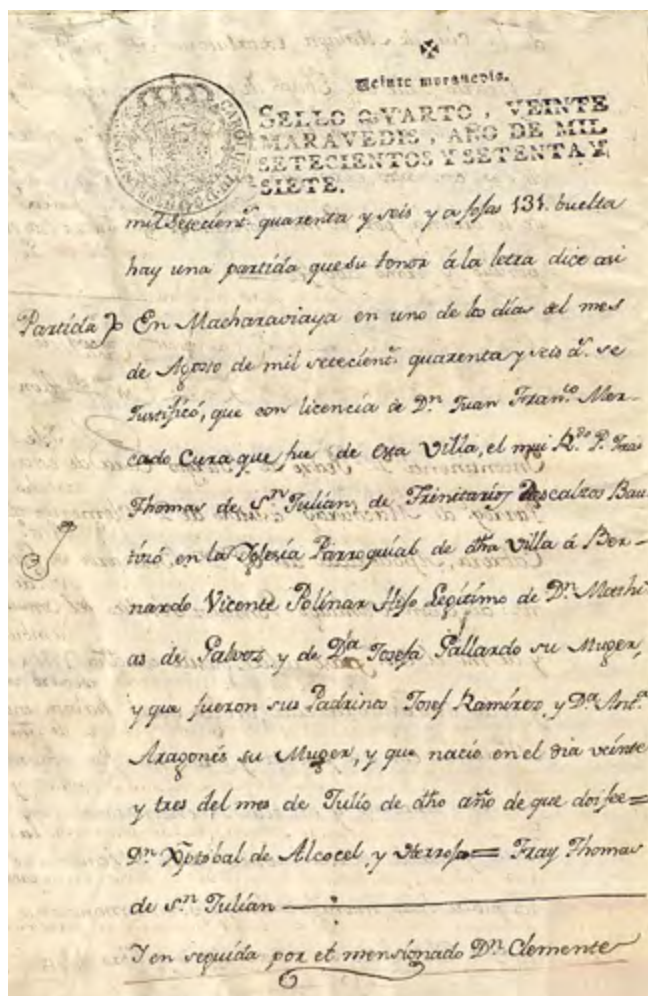 Veinte maravedis.
SELLO QVARTO, VEINTE
MARAVEDIS, AÑO DE MIL
SETECIENTOS Y SETENTA Y
SIETE.
mil Setecient.ˢ quarenta y seis y a fojas 131. buelta
hay una partida que su tenor á la letra dice asi
Partida En Macharaviaya en uno de los días del mes
de Agosto de mil setecient.ˢ quarenta y seis a.ˢ se
Justificó, que con licencia de D.ⁿ Juan Fran.ᶜᵒ Mer-
cado Cura que fue de esta Villa, el mui R.ᵈᵒ P. Frai
Thomas de S.ⁿ Julián, de Trinitarios Descalzos Bau-
tizó, en la Iglesia Parroquial de dha Villa á Ber-
nardo Vicente Polinar Hijo Legítimo de D.ⁿ Mathi
as de Galvez y de D.ª Josefa Gallardo su Muger,
y que fueron sus Padrinos Josef Ramírez y D.ª Ant.ª
Aragonés su Muger, y que nació en el dia veinte
y tres del mes de Julio de dho año de que doi fee=
D.ⁿ Xptobal de Alcocel y = Fray Thomas
de S.ⁿ Julián
Y en seguida por el mensionado D.ⁿ Clemente